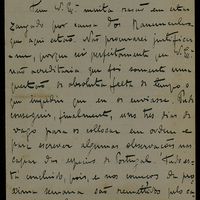 Tem V. Ex. muita razão em estar
zangado por causa dos Ranunculus
que aqui estão. Não procurarei justificar-
me, porque sei perfeitamente que V. Ex.
não acreditaria que foi somente uma
questão de absoluta falta de tempo o
que impediu que eu os enviasse. Pude
conseguir, finalmente, uns tres dias de
vago para os collocar em ordem e
para escrever algumas observações nas
capas das especies de Portugal. Tudo es-
tá concluido, pois, e nos começos da pro-
xima semana são remettidos pelo ca-